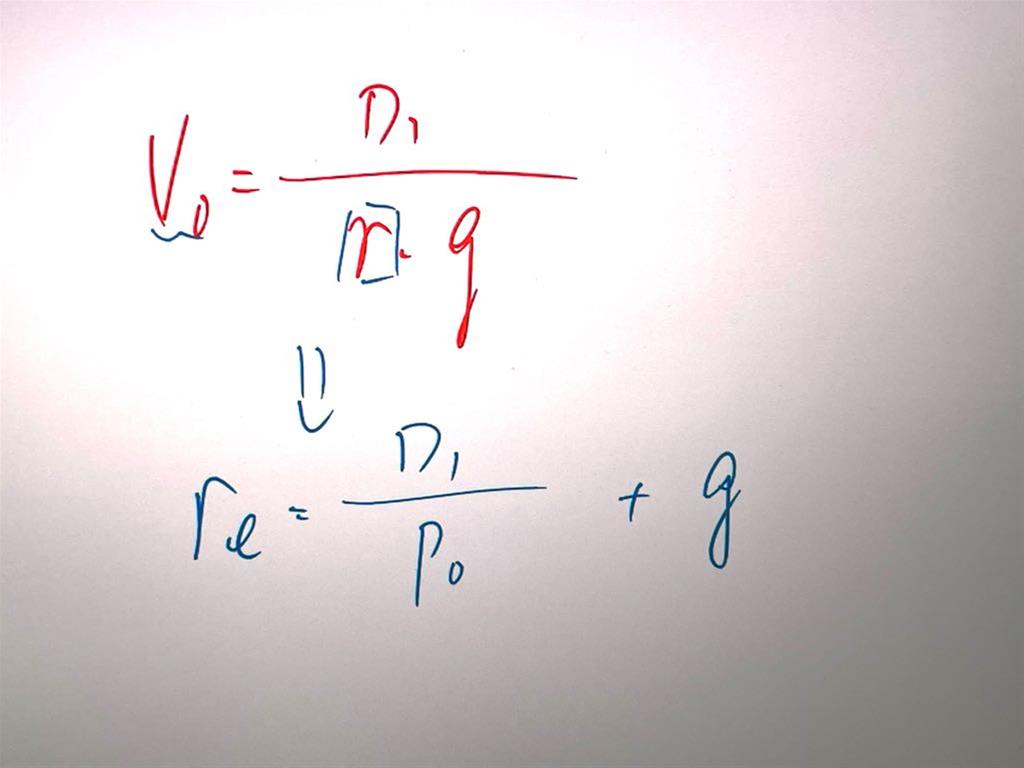 V₀ = D₁ / [r] . g
⇓
rₑ = D₁ / P₀ + g